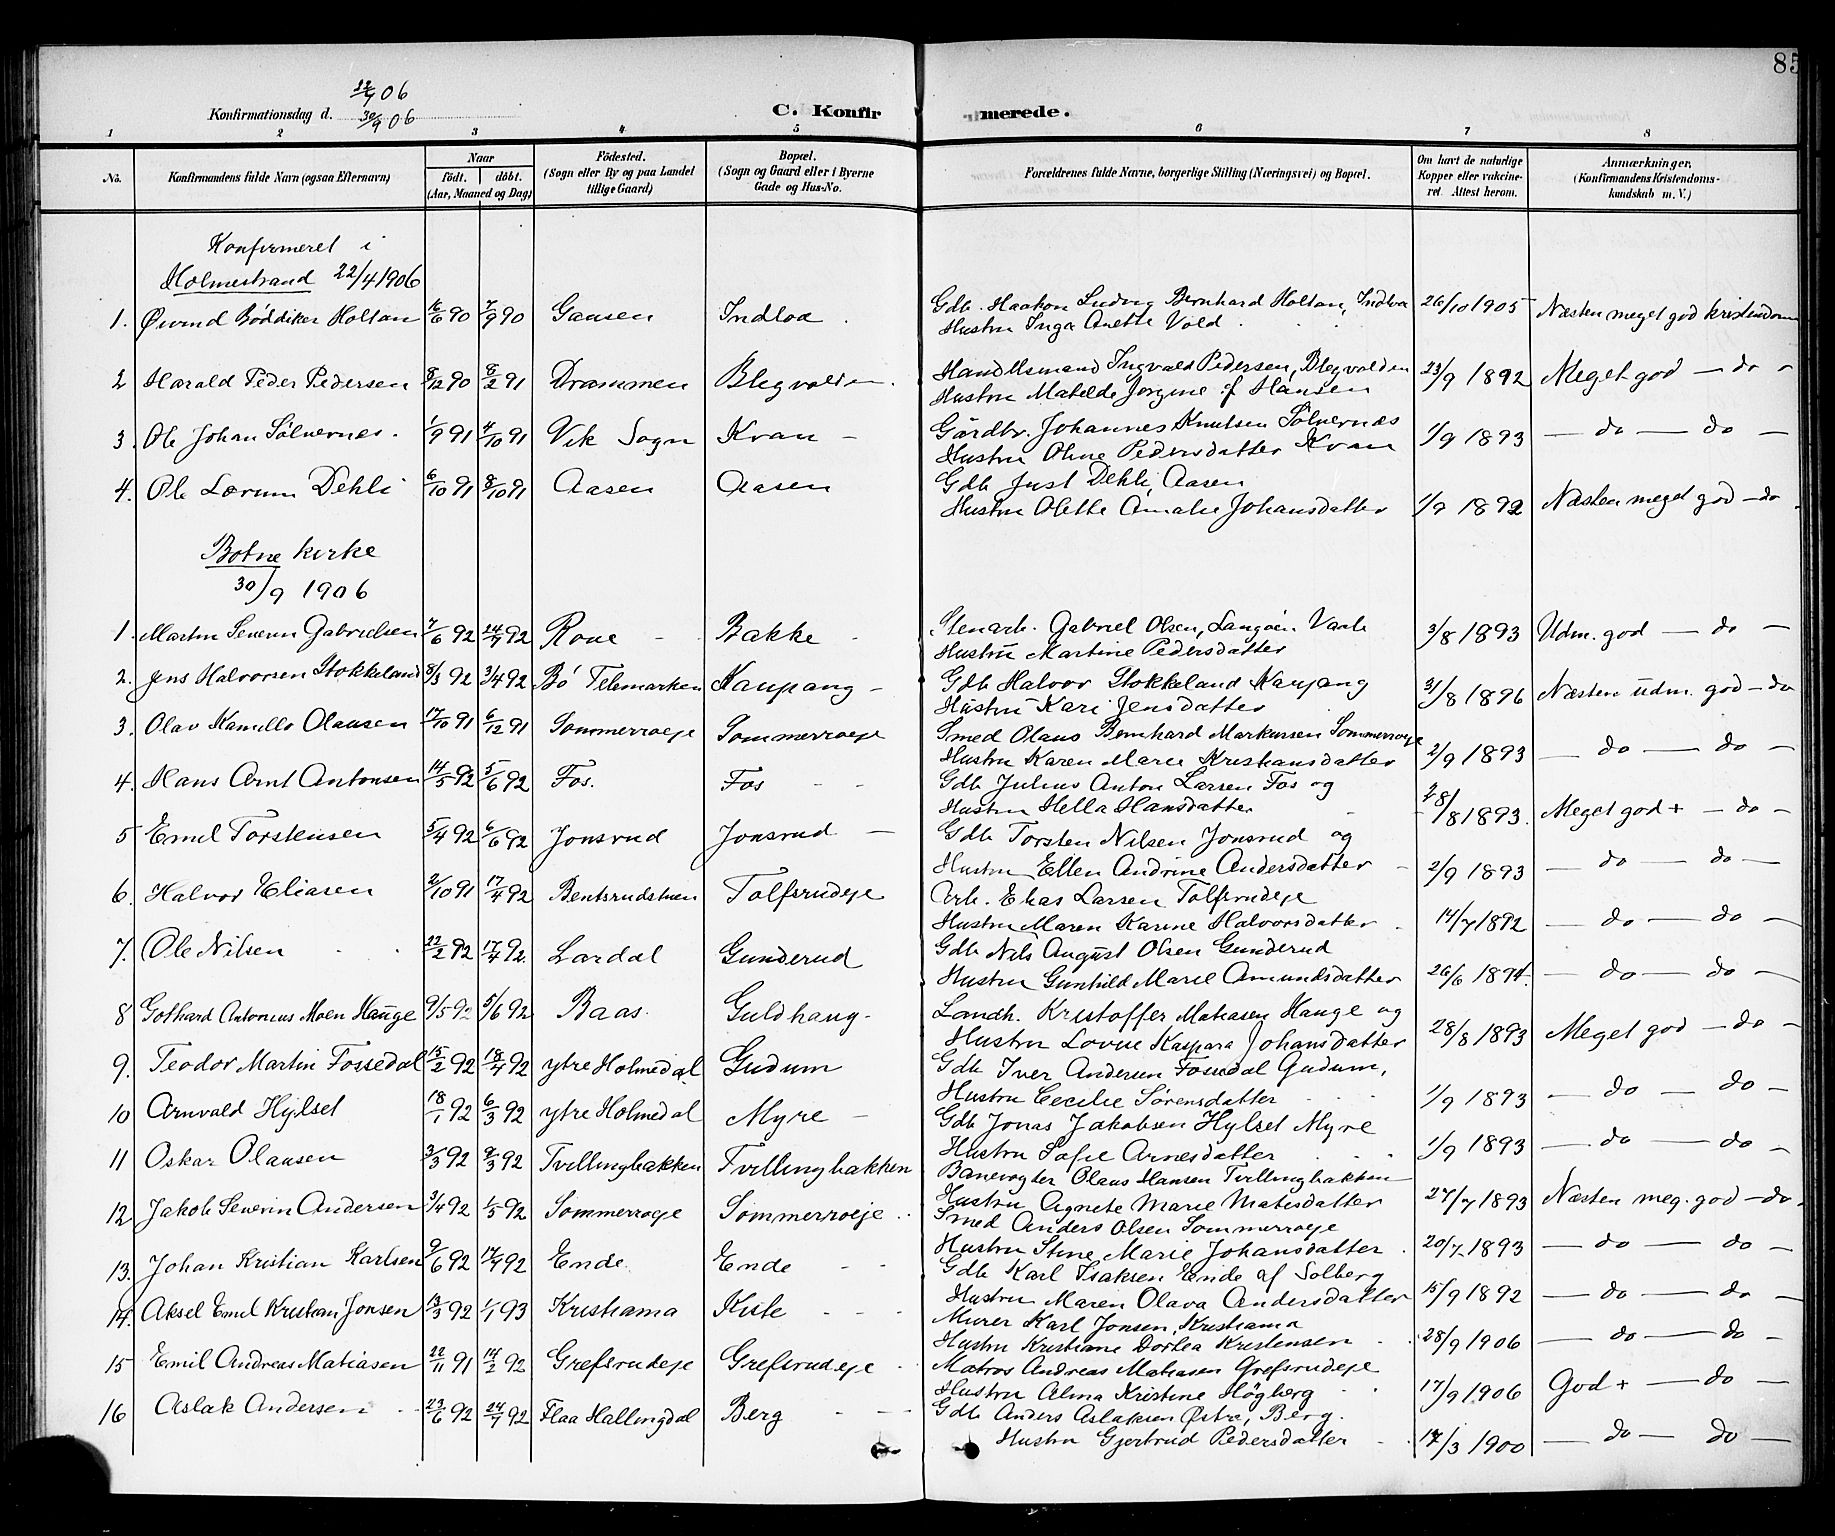 85
22/4 06
Konfirmationsdag d. 30/9 06
C. Konfirmerede.
1 2 3 4 5 6 7 8
No. Konfirmandens fulde Navn (ogsaa Efternavn) Naar Födt. döbt. (Aar, Maaned og Dag) Födested. (Sogn eller By og paa Landet tillige Gaard) Bopæl. (Sogn og Gaard eller i Byerne Gade og Hus-No. Forældrenes fulde Navne, borgerlige Stilling (Næringsvei) og Bopæl. Om havt de naturlige Kopper eller vakcineret Attest herom. Anmærkninger, (Konfirmandens Kristendomskundskab m. V.)
Konfirmeret i
Holmestrand 22/4 1906
1. Øivind Böddiker Holtan 16/6 90 7/9 90 Gausen Indloa Gdb. Haakon Ludvig Bernhard Holtan, Indloa 26/10 1905 Næsten meget god kristendom
Hustru Inga Anette Vold
2 Harald Peder Pedersen 8/12 90 8/2 91 Drammen Blegvolden Handelsmand Ingvald Pedersen, Blegvolden 23/9 1892 Meget god — do -
Hustru Matilde Jorgine f. Hansen
3. Ole Johan Sölvernes. 1/9 91 4/10 91 Vik Sogn Kvan - Gårdbr. Johannes Knutsen Sölvernæs 1/9 1893 — do — do —
Hustru Oline Pedersdatter Kvan
4. Ole Lærum Dehli 6/10 91 8/10 91 Aasen Aasen Gdb Just Dehli, Aasen
Hustru Olette Amalie Johansdatter 1/9 1892 Næsten meget god - do
Botne kirke
30/9 1906
1. Martin Severin Gabrielsen 7/6 92 24/7 92 Roue Bakke Stenarb. Gabriel Olsen, Langöen. Vaale 3/8 1893 Udm. god — do —
Hustru Martine Pedersdatter
2. Jens Halvorsen Stokkeland 8/3 92 3/4 92 Bö Telemarken Kaupang - Gdb Halvor Stokkeland Kaupang 31/8 1896 Næsten udm. god - do
Hustru Kari Jensdatter
3. Olav Kamillo Olausen 17/10 91 6/12 91 Sommerroeje Sommerroeje Smed Olaus Bernhard Markussen Sommerroeje
Hustru Karen Marie Kristiansdatter 2/9 1893 — do — do —
4. Hans Arnt Antonsen 14/5 92 5/6 92 Fos. Fos Gdb Julius Anton Larsen Fos og
Hustru Hella Hansdatter 28/8 1893. Meget god + — do -
5 Emil Torstensen 5/4 92 6/6 92 Jonsrud Jonsrud — Gdb Torsten Nilsen Jonsrud og
Hustru Ellen Andrine Andersdatter 2/9 1893 — do — do —
6. Halvor Eliasen 2/10 91 17/4 92 Bentsrudstuen Tolfsrudeje Arb. Elias Larsen Tolfsrudeje
Hustru Maren Karine Halvorsdatter 14/7 1892 — do — do —
7. Ole Nilsen 22/2 92 17/4 92 Lardal Gunderud Gdb Nils August Olsen Gunderud
Hustru Gunhild Marie Amundsdatter 26/6 1894. — do — do —
8 Gothard Antonius Moen Hauge 9/5 92 5/6 92 Baas. Guldhaug - Landh. Kristoffer Matiasen Hauge og
Hustru Lovise Kaspara Johansdatter 28/8 1893 Meget god — do —
9. Teodor Martin Fossedal 15/2 92 18/4 92 ytre Holmedal Gudum Gdb Iver Andersen Fossedal Gudum,
Hustru Cecilie Sörensdatter 1/9 1893 — do — do —
10 Arnvald Hylset 18/1 92 6/3 92 ytre Holmedal Myre — Gdb Jonas Jakobsen Hylset Myre
Hustru Sofie Arnesdatter 1/9 1893 — do — do -
11 Oskar Olausen 3/3 92 9/3 92 Tvillingbakken Tvillingbakken Banevogter Olaus Hansen Tvillingbakken
Hustru Agnete Marie Matisdatter 27/7 1893 Næsten meg. god — do -
12 Jakob Severin Andersen 3/4 92 1/5 92 Sommerroeje Sommerroeje Smed Anders Olsen Sommerroeje
Hustru Stine Marie Johansdatter 20/7 1893 — do — do —
13. Johan Kristian Karlsen 9/6 92 17/7 92 Ende Ende Gdb Karl Isaksen Ende af Solberg
Hustru Maren Olava Andersdatter 15/9 1892 — do — do —
14. Aksel Emil Kristian Jonsen 13/3 92 1/1 93 Kristiania Kile Murer Karl Jonsen, Kristiania
Hustru Kristiane Dortea Kristensen 28/9 1906 — do — do -
15 Emil Andreas Matiasen 22/11 91 14/2 92 Grefsrudeje Grefsrudeje Matros Andreas Matiasen Grefsrudeje
Hustru Alma Kristine Högberg 17/9 1906 God + — do —
16 Aslak Andersen 23/6 92 24/7 92 Flaa Hallingdal Berg Gdb Anders Aslaksen Østre, Berg.
Hustru Gjertrud Pedersdatter 17/3 1900 — do — do —